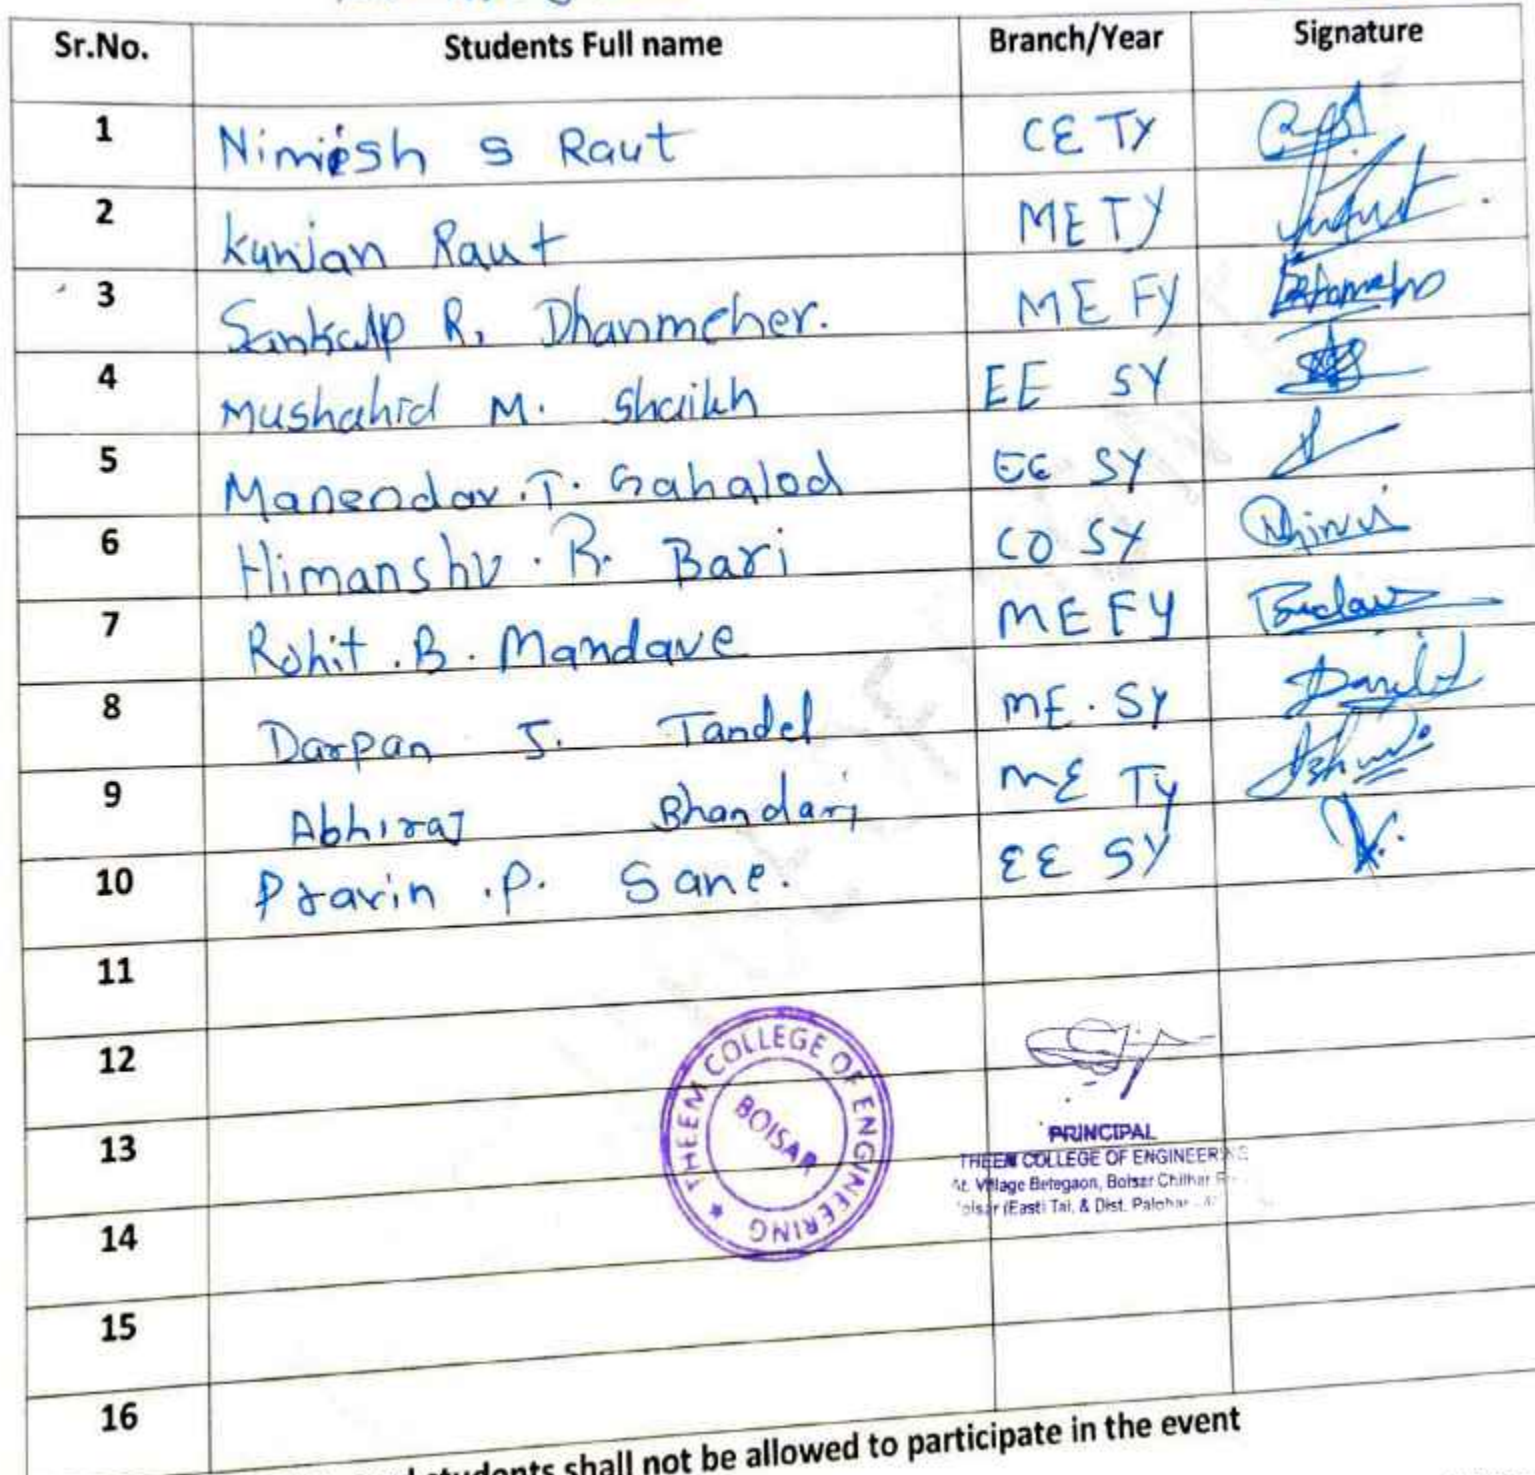 Sr.No. Students Full name Branch/Year Signature
1 Nimesh S Raut CE TY
2 Kunjan Raut ME TY
3 Sankalp R. Dhanmeher. ME FY
4 Mushahid M. Shaikh EE SY
5 Manendar.T. Gahalod EE SY
6 Himanshu.R. Bari CO SY
7 Rohit.B. Mandave ME FY
8 Darpan J. Tandel ME.SY
9 Abhiraj Bhandari ME TY
10 Pravin.P. Sane. EE SY
11
12
13
14
15
16
★ THEEM COLLEGE OF ENGINEERING
BOISAR
PRINCIPAL
THEEM COLLEGE OF ENGINEERING
At. Village Betegaon, Boisar Chilhar
Boisar (East) Tal. & Dist. Palghar
students shall not be allowed to participate in the event